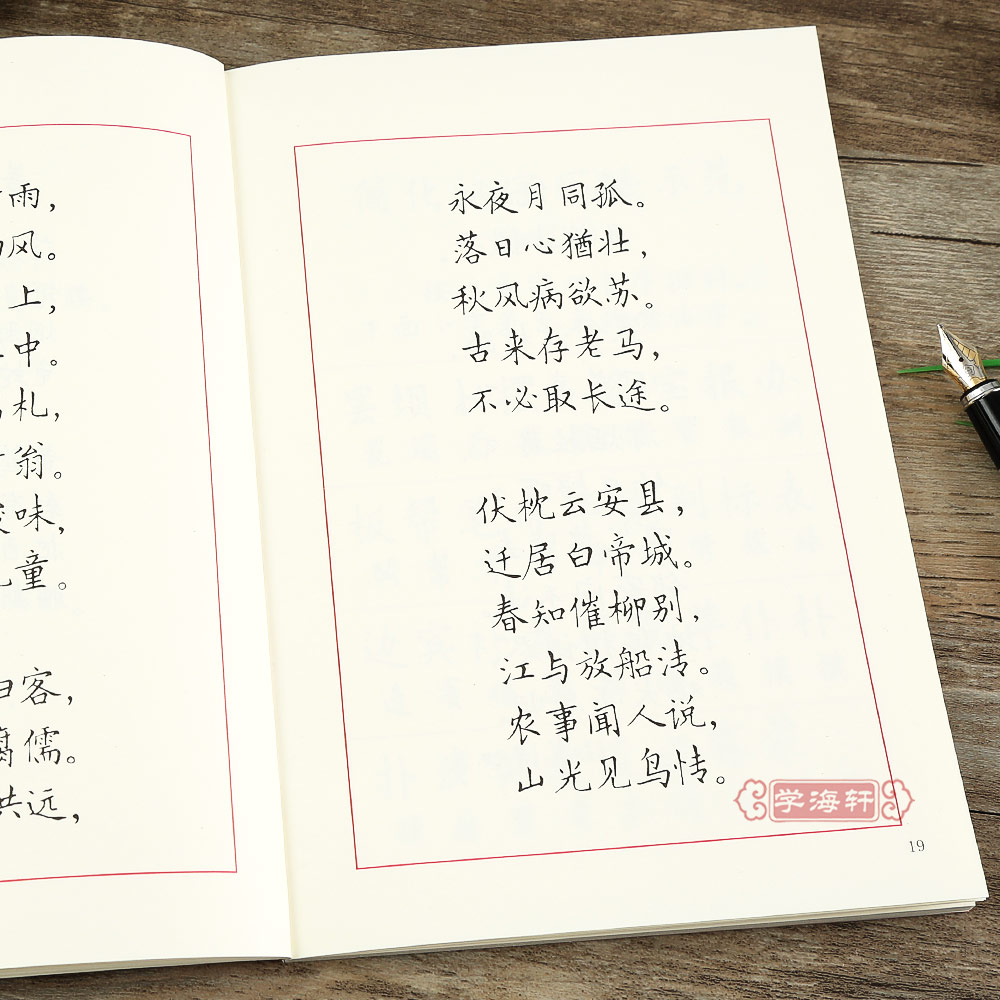 雨，
风。
上，
中。
札，
翁。
味，
童。
客，
腐儒。
共远，
永夜月同孤。
落日心犹壮，
秋风病欲苏。
古来存老马，
不必取长途。
伏枕云安县，
迁居白帝城。
春知催柳别，
江与放船清。
农事闻人说，
山光见鸟情。
学海轩
19